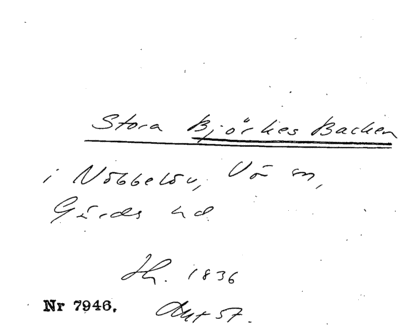 Stora Björkes Backen
i Nöbbelöv, Vä sn,
Gärds hd
1836
Nr 7946.